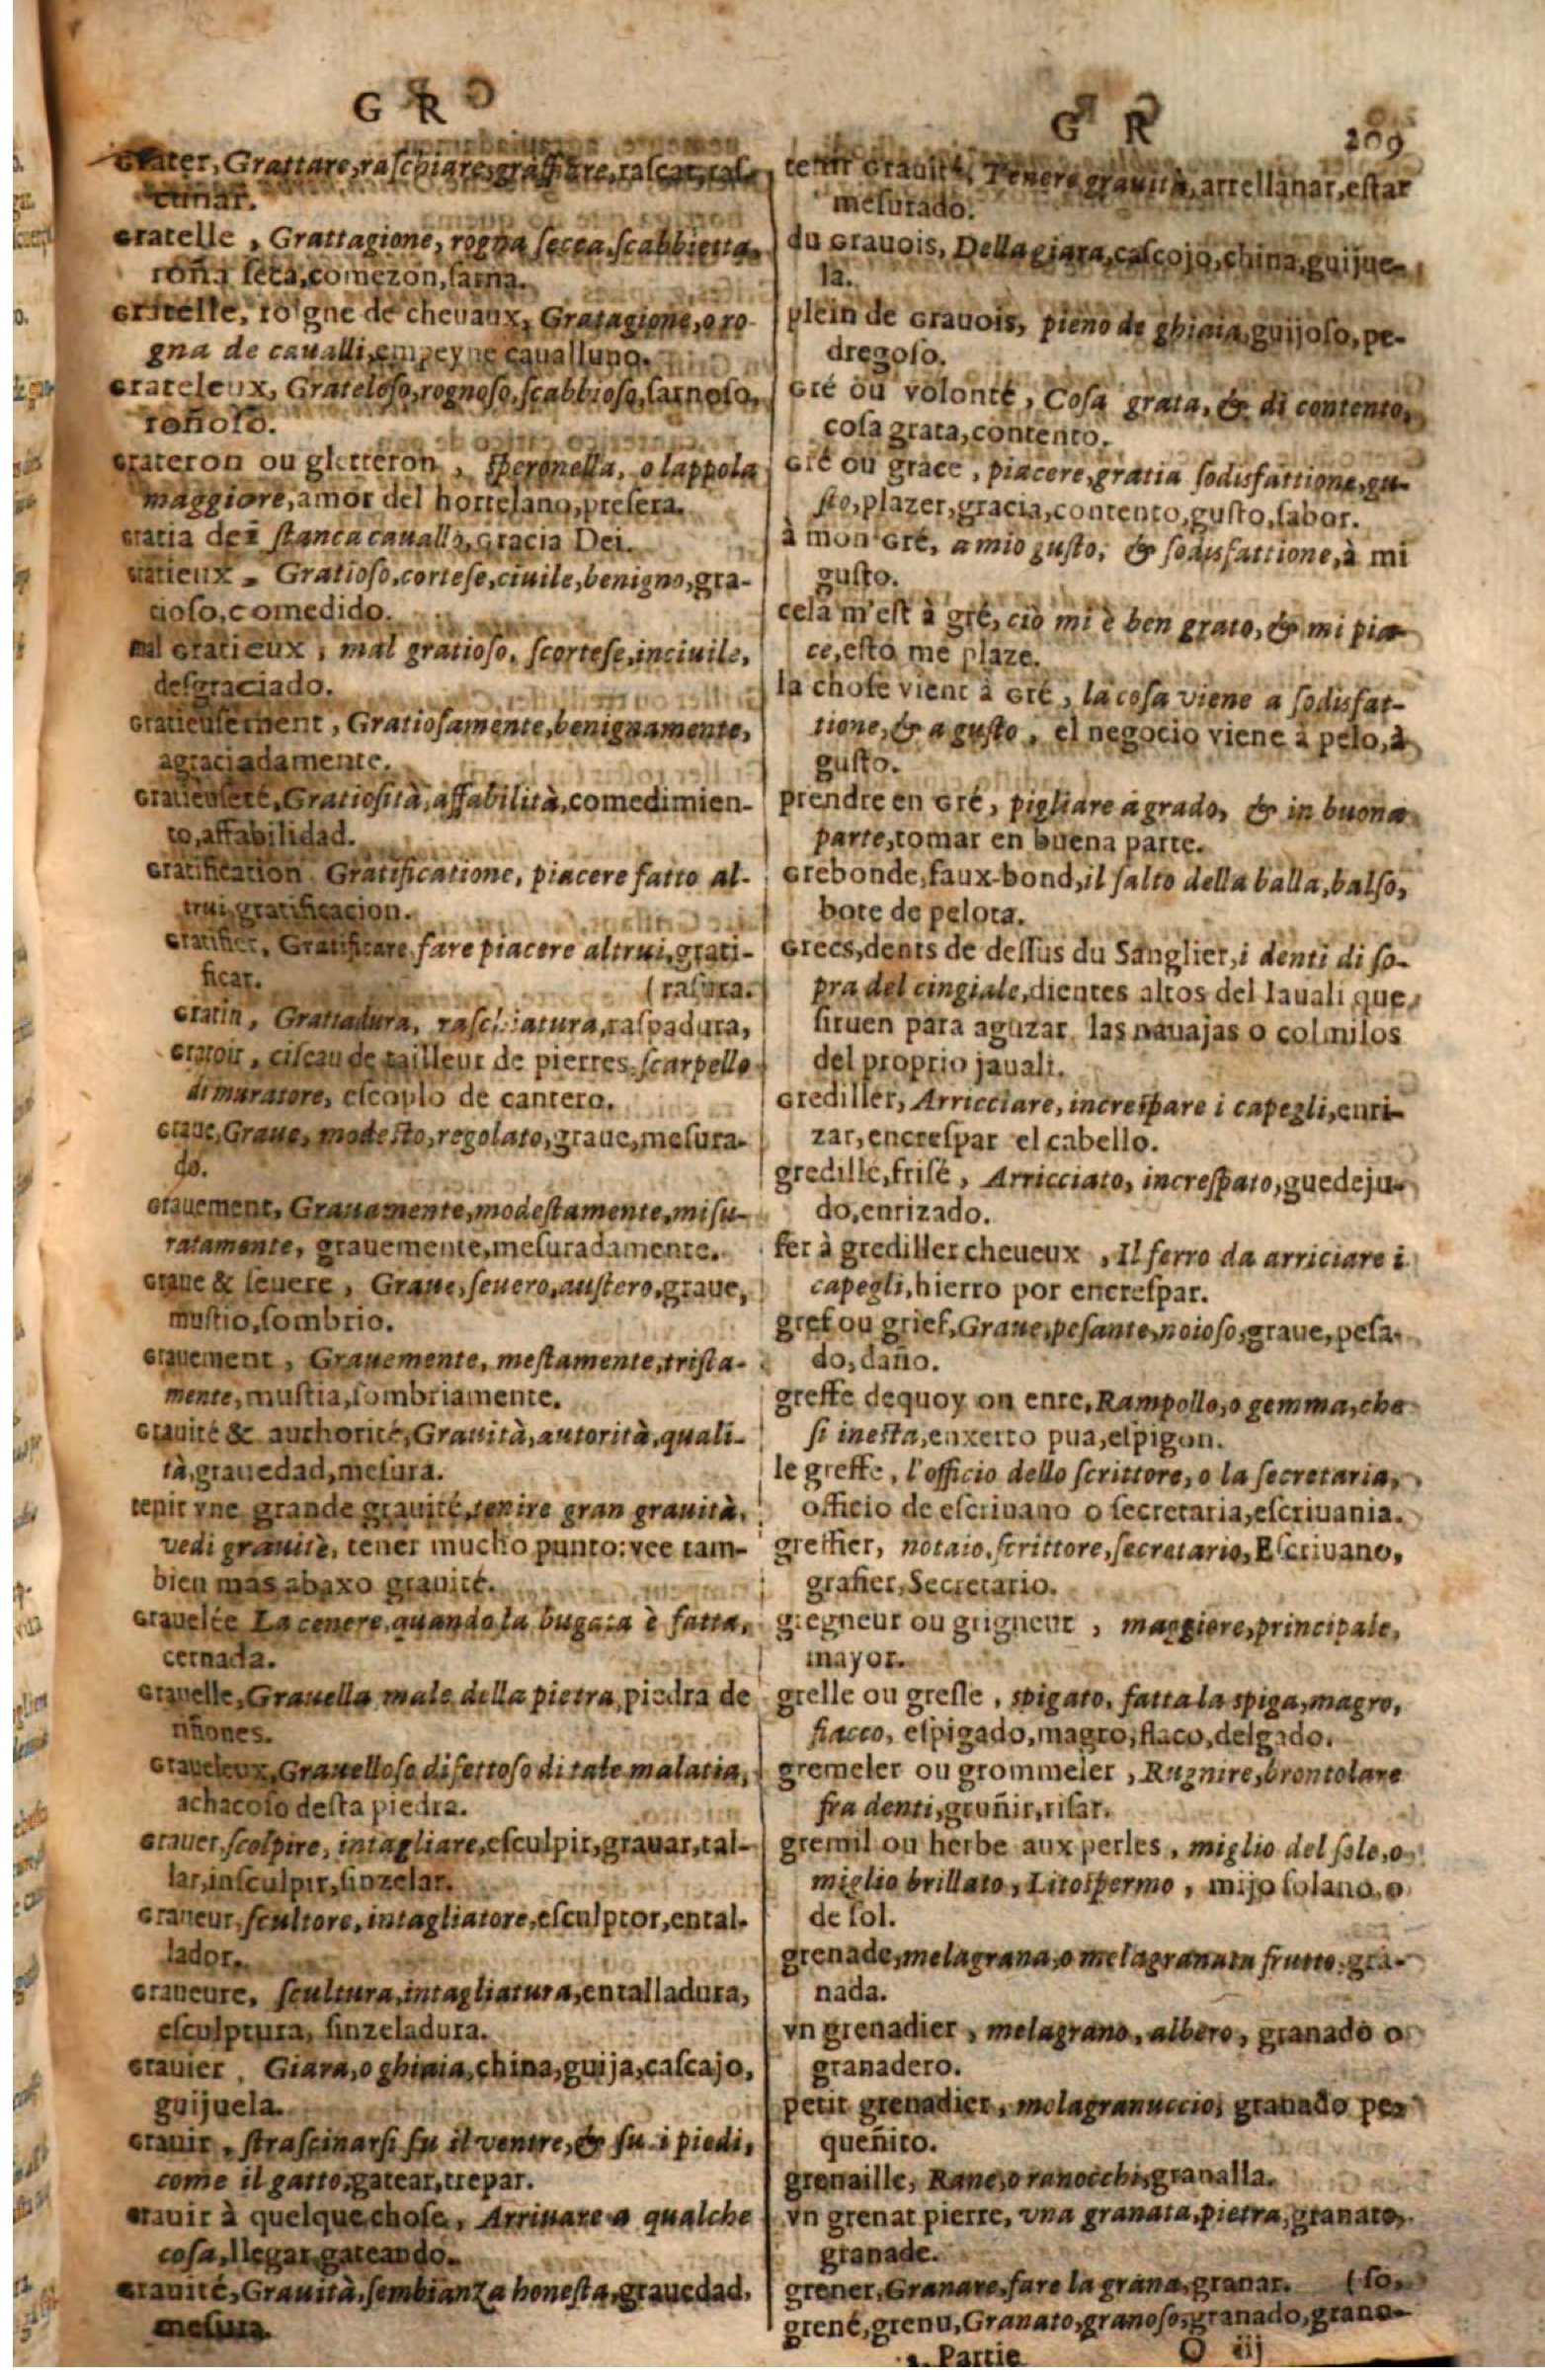 G R
Grater, Grattare, raſchiare, graffiare, raſcar, raſ-
cunar.
Gratelle, Grattagione, rogna ſecca, ſcabbietta,
roña ſeca, comezon, ſarna.
Gratelle, roigne de cheuaux, Gratagione, o ro-
gna de caualli, empeyne caualluno.
Grateleux, Grateloſo, rognoſo, ſcabbioſo, ſarnoſo,
roñoſo.
Grateron ou gletteron, ſperonella, o lappola
maggiore, amor del hortelano, preſera.
Gratia dei ſtanca cauallo, gracia Dei.
Gratieux, Gratioſo, corteſe, ciuile, benigno, gra-
cioſo, comedido.
mal Gratieux, mal gratioſo, ſcorteſe, inciuile,
deſgraciado.
Gratieuſement, Gratioſamente, benignamente,
agraciadamente.
Gratieuſeté, Gratioſità, affabilità, comedimien-
to, affabilidad.
Gratification. Gratificatione, piacere fatto al-
trui, gratificacion.
Gratifier, Gratificare, fare piacere altrui, grati-
ficar. (raſura.
Gratin, Grattadura, raſchiatura, raſpadura,
Gratoir, ciſeau de tailleur de pierres, ſcarpello
di muratore, eſcoplo de cantero.
Graue, Graue, modeſto, regolato, graue, meſura-
do.
Grauement, Grauamente, modeſtamente, miſu-
ratamente, grauemente, meſuradamente.
Graue & ſeuere, Graue, ſeuero, auſtero, graue,
muſtio, ſombrio.
Grauement, Grauemente, meſtamente, triſta-
mente, muſtia, ſombriamente.
Grauité & authorité, Grauità, autorità, quali-
tà, grauedad, meſura.
tenir vne grande grauité, tenire gran grauità,
vedi grauitè, tener mucho punto: vee tam-
bien mas abaxo grauité.
Grauelée La cenere, quando la bugata è fatta,
cernada.
Grauelle, Grauella male della pietra, piedra de
riñones.
Graueleux, Grauelloſo difettoſo di tale malatia,
achacoſo deſta piedra.
Grauer, ſcolpire, intagliare, eſculpir, grauar, tal-
lar, inſculpir, ſinzelar.
Graueur, ſcultore, intagliatore, eſculptor, ental-
lador.
Graueure, ſcultura, intagliatura, entalladura,
eſculptura, ſinzeladura.
Grauier, Giara, o ghiaia, china, guija, caſcajo,
guijuela.
Grauir, ſtraſcinarſi ſu il ventre, & ſu i piedi,
come il gatto, gatear, trepar.
Grauir à quelque choſe, Arriuare a qualche
coſa, llegar gateando.
Grauité, Grauità, ſembianza honeſta, grauedad,
meſura.
G R 209
tenir Grauité, Tenere grauità, arrellanar, eſtar
meſurado.
du Grauois, Della giara, caſcojo, china, guijue-
la.
plein de Grauois, pieno de ghiaia, guijoſo, pe-
dregoſo.
Gré ou volonté, Coſa grata, & di contento,
coſa grata, contento.
Gré ou grace, piacere, gratia ſodisfattione, gu-
ſto, plazer, gracia, contento, guſto, ſabor.
à mon Gré, a mio guſto, & ſodisfattione, à mi
guſto.
cela m'eſt à gré, ciò mi è ben grato, & mi pia-
ce, eſto me plaze.
la choſe vient à Gré, la coſa viene a ſodisfat-
tione, & a guſto, el negocio viene a pelo, à
guſto.
prendre en Gré, pigliare a grado, & in buona
parte, tomar en buena parte.
Grebonde, faux-bond, il ſalto della balla, balſo,
bote de pelota.
Grecs, dents de deſſus du Sanglier, i denti di ſo-
pra del cingiale, dientes altos del Iauali que
ſiruen para aguzar las nauajas o colmilos
del proprio jauali.
Grediller, Arricciare, increſpare i capegli, enri-
zar, encreſpar el cabello.
gredillé, friſé, Arricciato, increſpato, guedeju-
do, enrizado.
fer à grediller cheueux, Il ferro da arriciare i
capegli, hierro por encreſpar.
gref ou grief, Graue, peſante, noioſo, graue, peſa-
do, daño.
greffe dequoy on ente, Rampollo, o gemma, che
ſi ineſta, enxerto pua, eſpigon.
le greffe, l'officio dello ſcrittore, o la ſecretaria,
officio de eſcriuano o ſecretaria, eſcriuania.
greffier, notaio, ſcrittore, ſecretario, Eſcriuano,
grafier, Secretario.
gregneur ou grigneur, maggiore, principale,
mayor.
grelle ou greſle, ſpigato, fatta la ſpiga, magro,
fiacco, eſpigado, magro, flaco, delgado.
gremeler ou grommeler, Rugnire, brontolare
fra denti, gruñir, rifar.
gremil ou herbe aux perles, miglio del ſole, o
miglio brillato, Litoſpermo, mijo ſolano, o
de ſol.
grenade, melagrana, o melagranata frutto, gra-
nada.
vn grenadier, melagrano, albero, granado o
granadero.
petit grenadier, melagranuccio, granado pe-
queñito.
grenaille, Rane, o ranocchi, granalla.
vn grenat pierre, vna granata, pietra, granato,
granade.
grener, Granare, fare la grana, granar. (ſo.
grené, grenu, Granato, granoſo, granado, grano-
1. Partie O iij